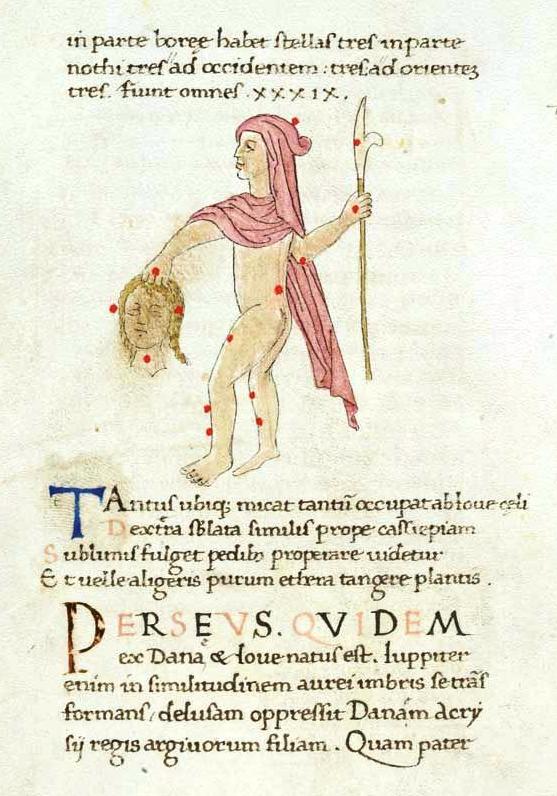 in parte boreę habet stellas tres in parte
nothi tres ad occidentem : tres ad orientez
tres. fiunt omnes . xxxix .
TAntus ubiq; micat tantū occupat ab Ioue cęli
Dextra sublata similis prope cassiepiam
Sublimis fulget pedibꝫ properare uidetur
Et uelle aligeris purum ethera tangere plantis .
PERSEVS. QVIDEM
ex Danaę & Ioue natus est. Iuppiter
enim in similitudinem aurei imbris se trās
formans / delusam oppressit Danaem Acry
sij regis argiuorum filiam . Quam pater